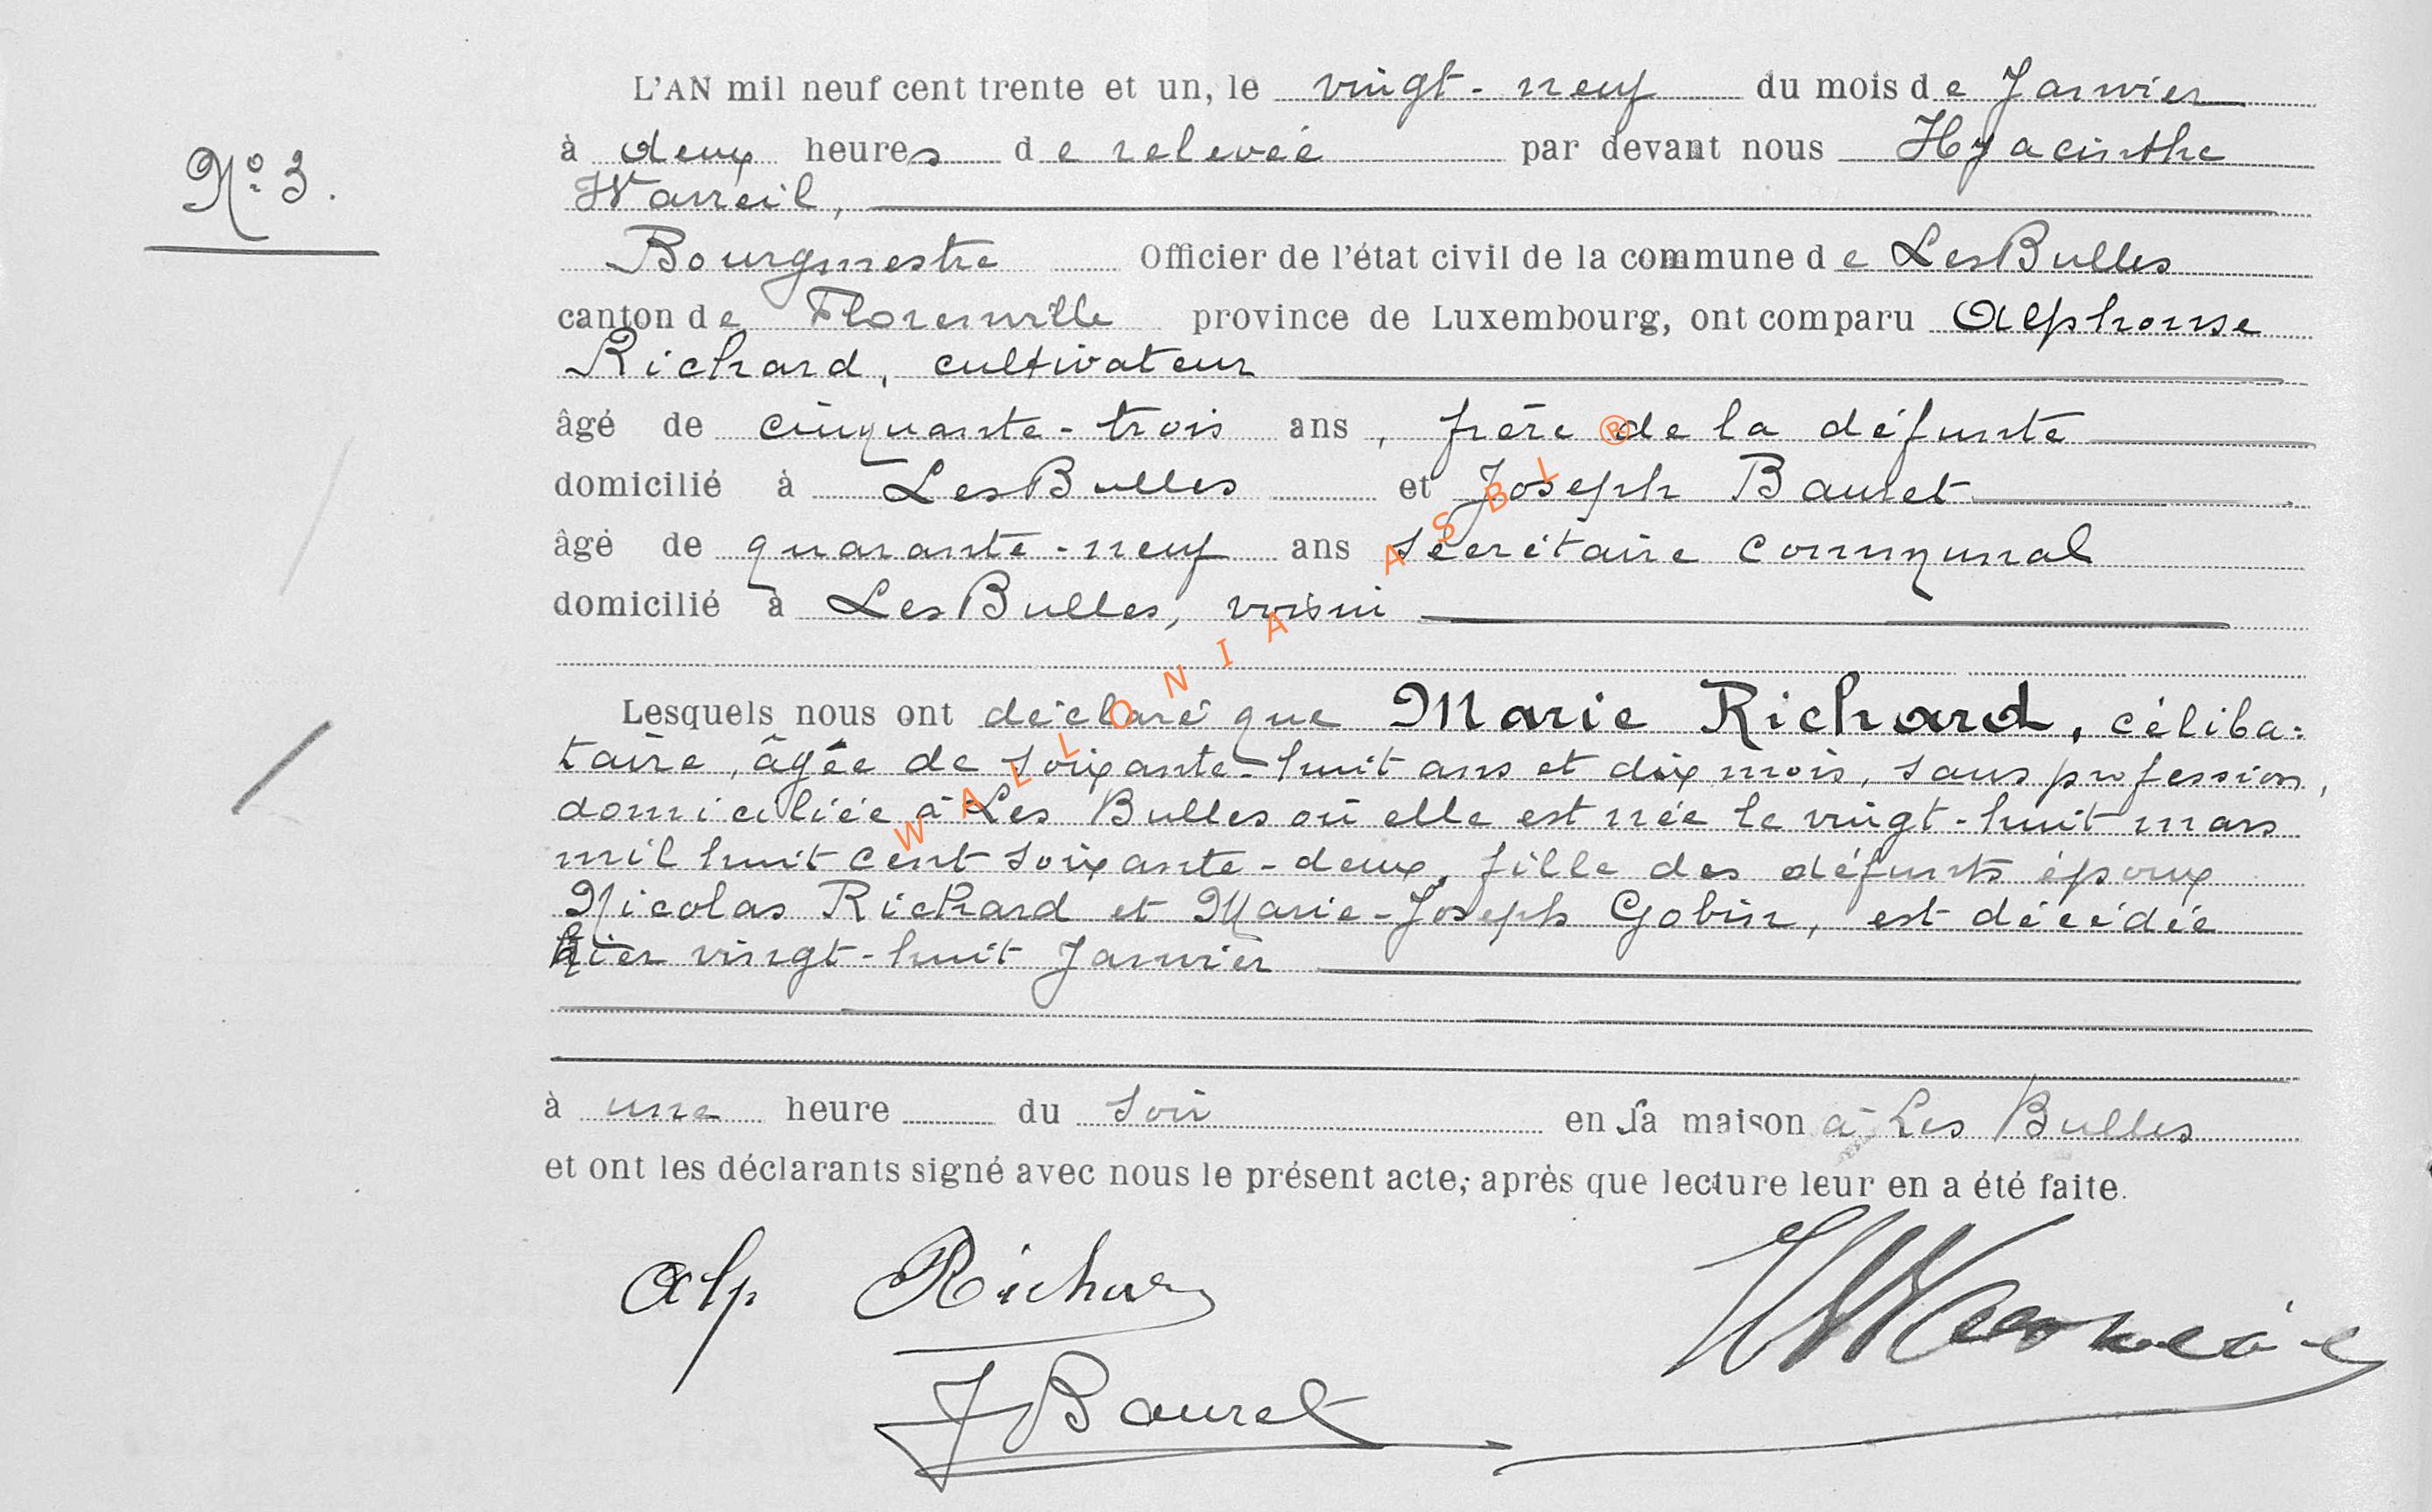 N° 3.
L'AN mil neuf cent trente et un, le vingt-neuf du mois de Janvier
à deux heures de relevée par devant nous Hyacinthe
Warreil,
Bourgmestre Officier de l'état civil de la commune de Les Bulles
canton de Florenville province de Luxembourg, ont comparu Alphonse
Richard, cultivateur
âgé de cinquante-trois ans, frère de la défunte
domicilié à Les Bulles et Joseph Bauret
âgé de quarante-neuf ans secrétaire communal
domicilié à Les Bulles, voisin
Lesquels nous ont déclaré que Marie Richard, céliba=
taire, âgée de soixante-huit ans et dix mois, sans profession,
domiciliée à Les Bulles où elle est née le vingt-huit mars
mil huit cent soixante-deux, fille des défunts époux
Nicolas Richard et Marie-Joseph Gobin, est décédée
hier vingt-huit Janvier
à une heure du soir en la maison à Les Bulles
et ont les déclarants signé avec nous le présent acte, après que lecture leur en a été faite.
Alp Richard
J Bauret
WALLONIA ASBL ®